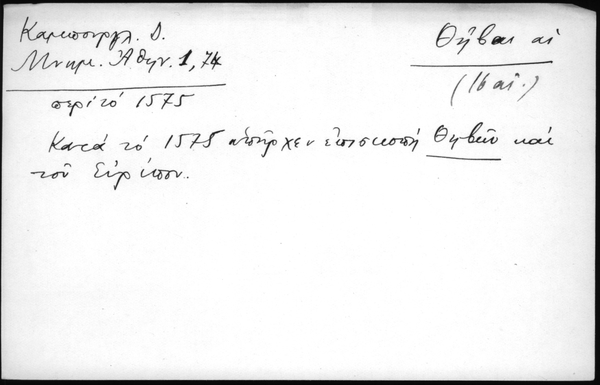 Καμπούρογλ. Δ.
Μνημ. Ἀθην. 1, 74
Θῆβαι αἱ
(16 αἰ.)
περί τό 1575
Κατά τό 1575 ὑπῆρχεν ἐπισκοπή Θηβῶν καί
τοῦ Εὐρίπου.